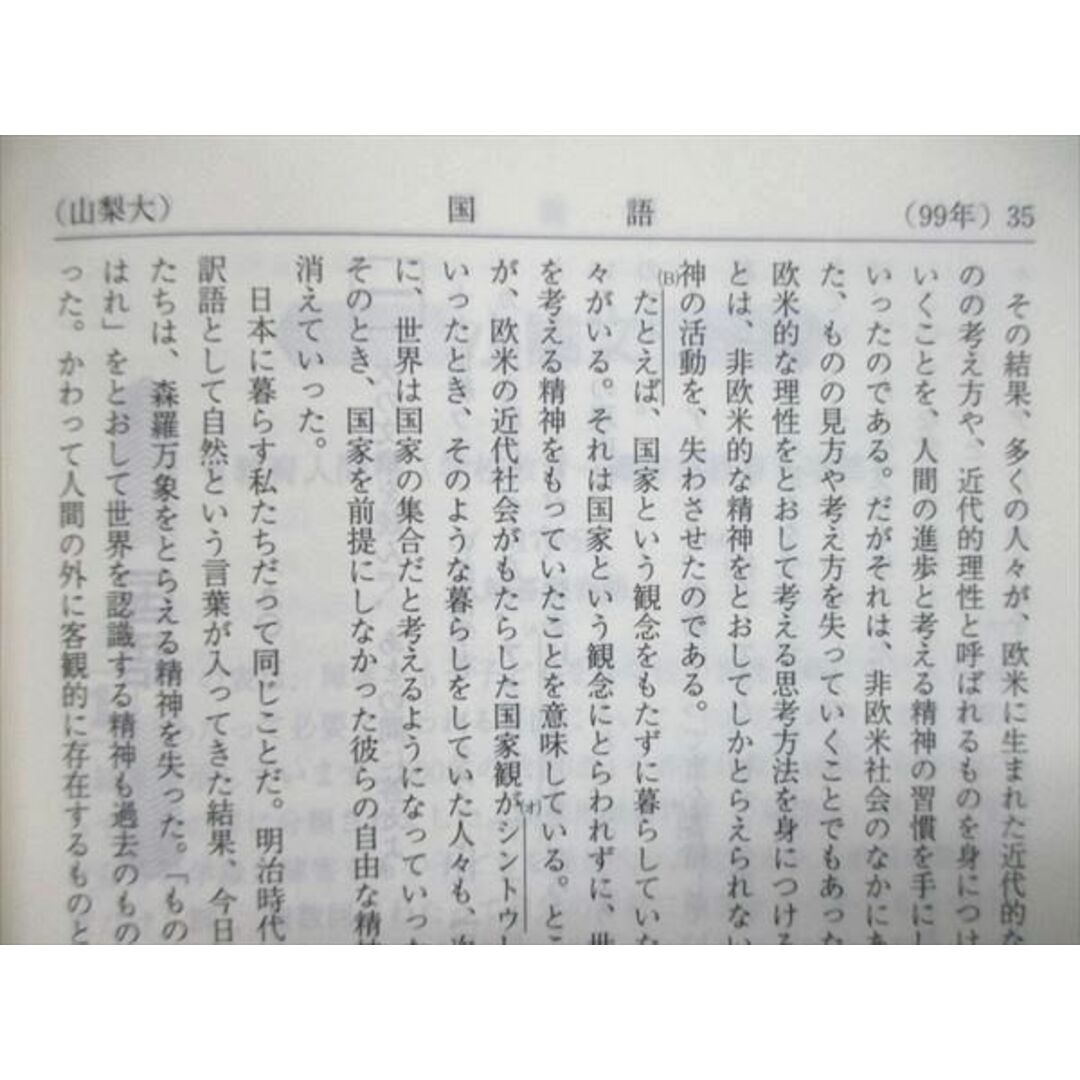 (山梨大) 国語 (99年) 35
その結果、多くの人々が、欧米に生まれた近代的な
のの考え方や、近代的理性と呼ばれるものを身につけ
いくことを、人間の進歩と考える精神の習慣を手にし
いったのである。だがそれは、非欧米社会のなかにあ
た、ものの見方や考え方を失っていくことでもあった
欧米的な理性をとおして考える思考方法を身につける
とは、非欧米的な精神をとおしてしかとらえられない
神の活動を、失わさせたのである。
(B)たとえば、国家という観念をもたずに暮らしていた
々がいる。それは国家という観念にとらわれずに、世
を考える精神をもっていたことを意味している。とこ
が、欧米の近代社会がもたらした国家観が(オ)シントウし
いったとき、そのような暮らしをしていた人々も、次
に、世界は国家の集合だと考えるようになっていった
そのとき、国家を前提にしなかった彼らの自由な精
消えていった。
日本に暮らす私たちだって同じことだ。明治時代
訳語として自然という言葉が入ってきた結果、今日
たちは、森羅万象をとらえる精神を失った。「もの
はれ」をとおして世界を認識する精神も過去のもの
った。かわって人間の外に客観的に存在するものと